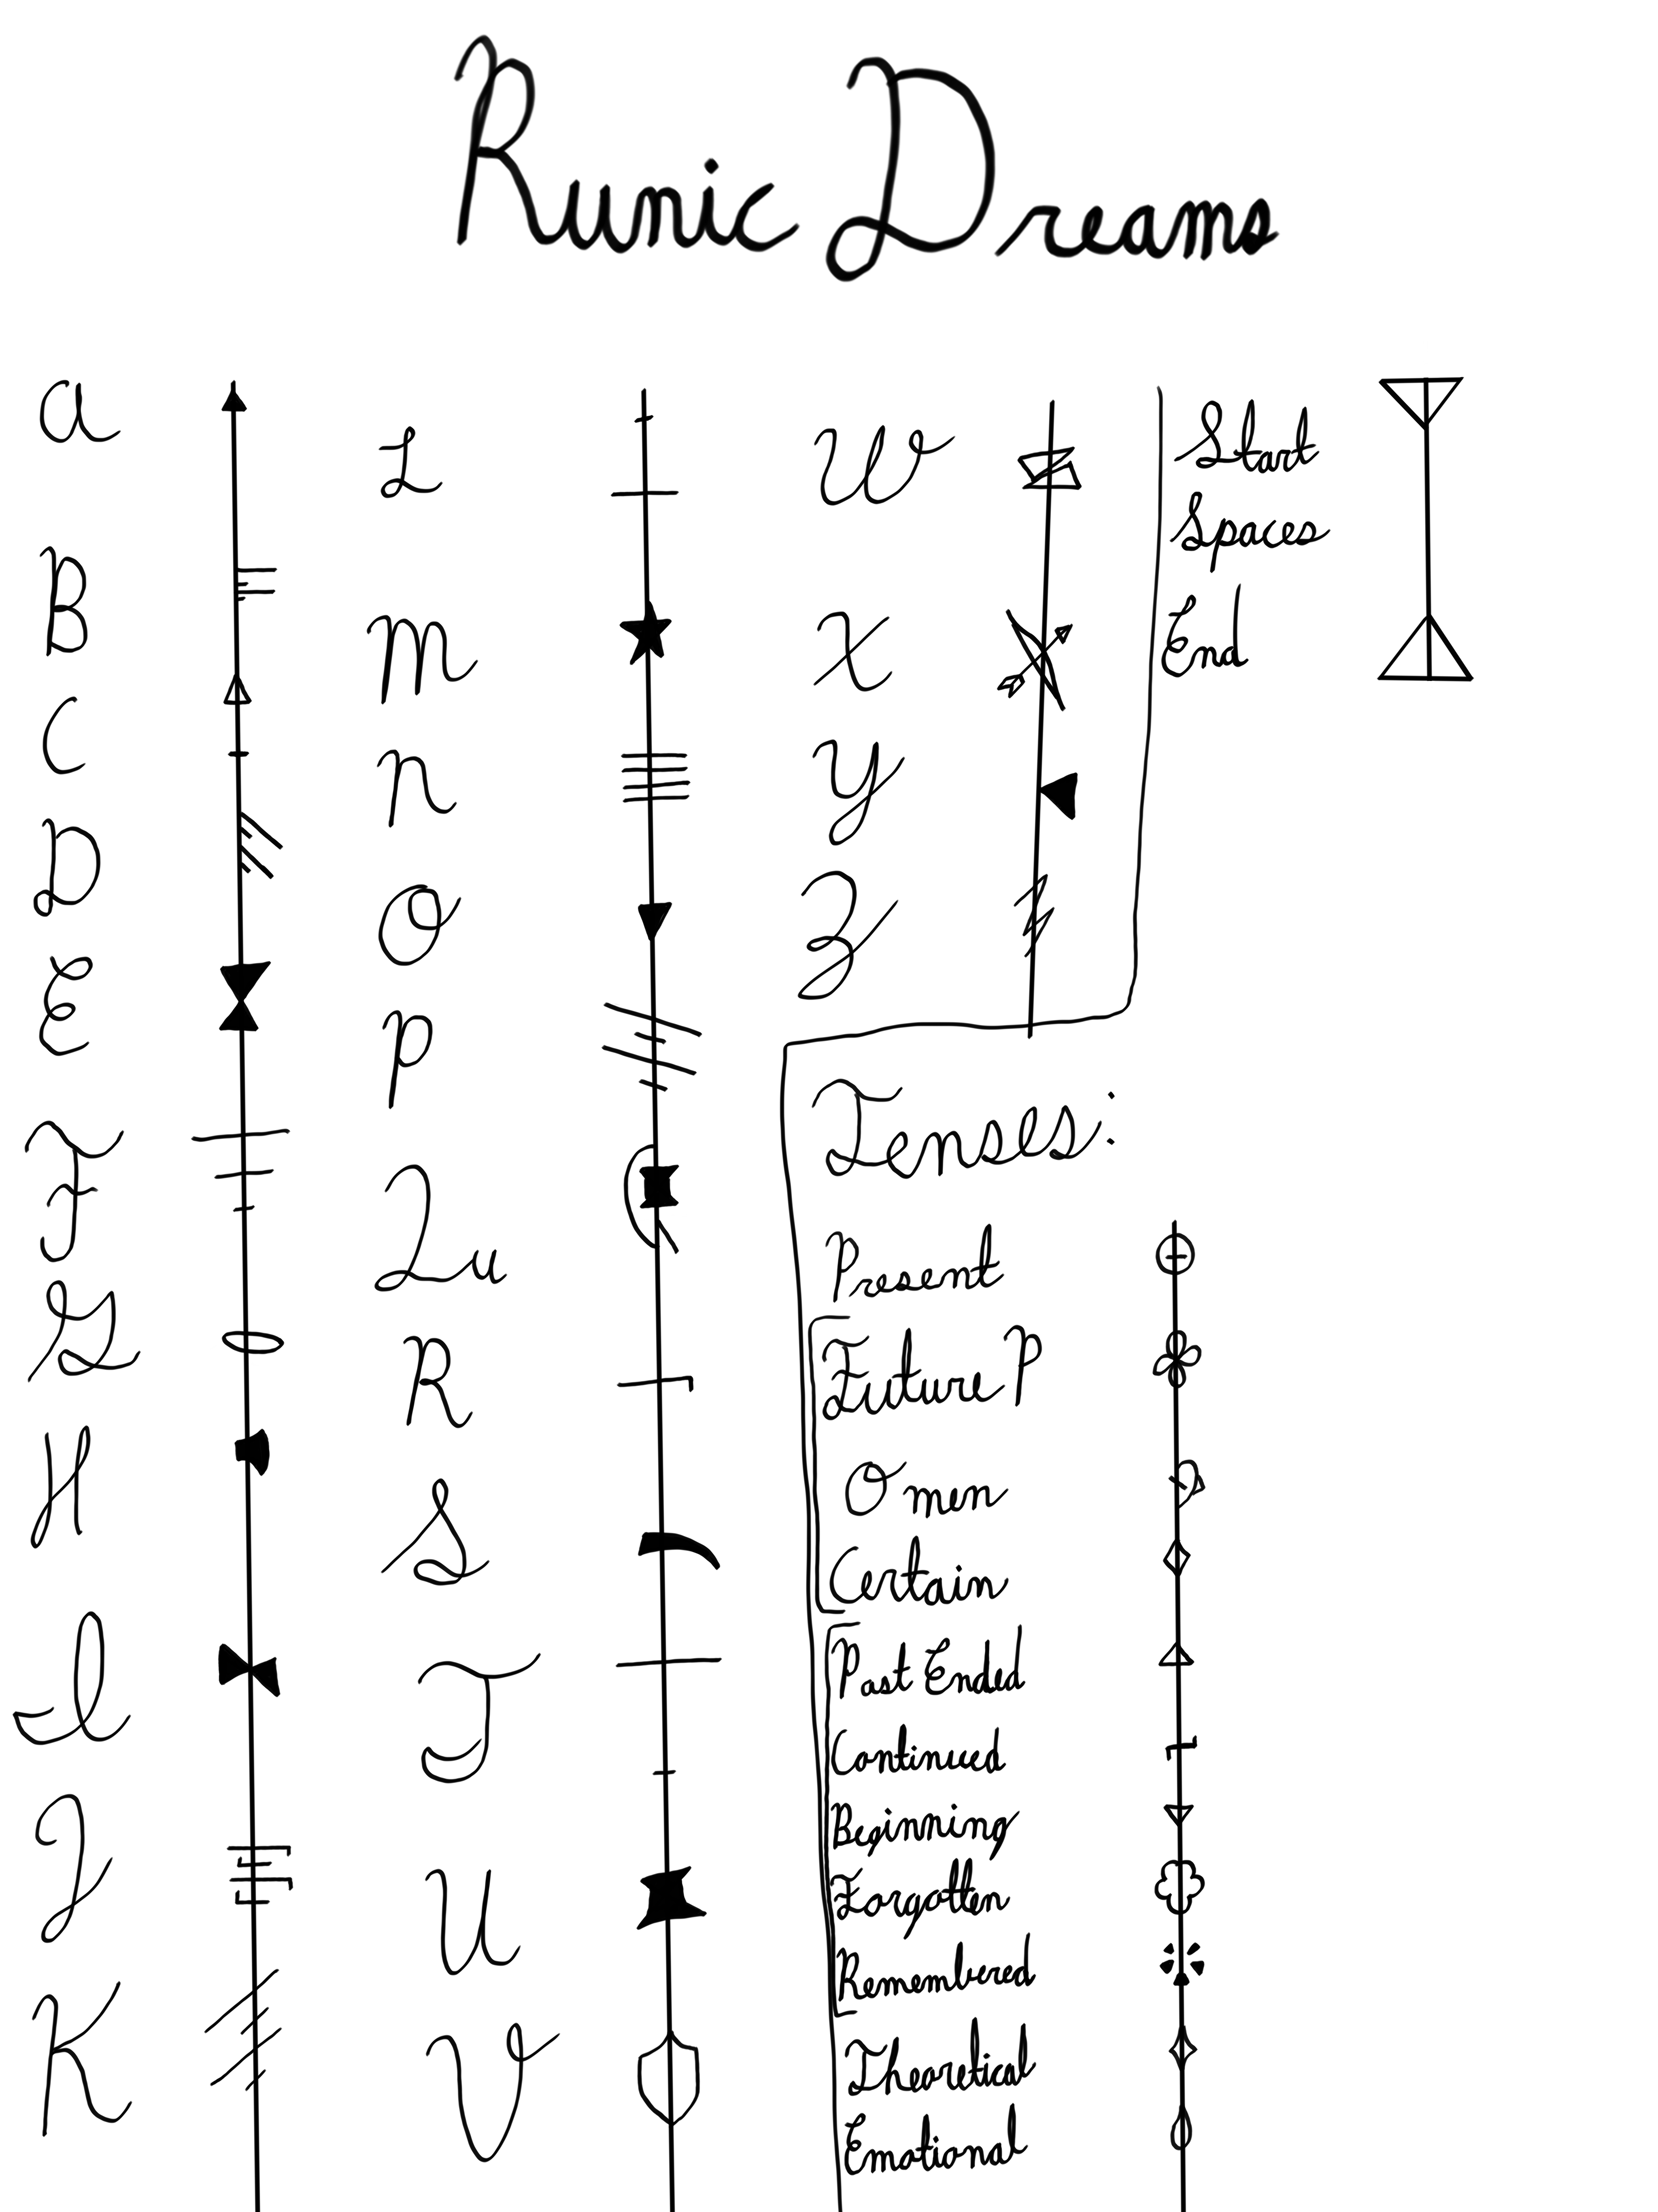 Runic Dreams
a
B
C
D
E
F
G
H
I
J
K
L
m
n
O
p
Qu
R
S
T
U
V
W
x
y
z
Start
Spaces
End
Tenses:
Present
Future P
Omen
Certain
Past Ended
Continued
Beginning
Forgotten
Remembered
Theoretical
Emotional